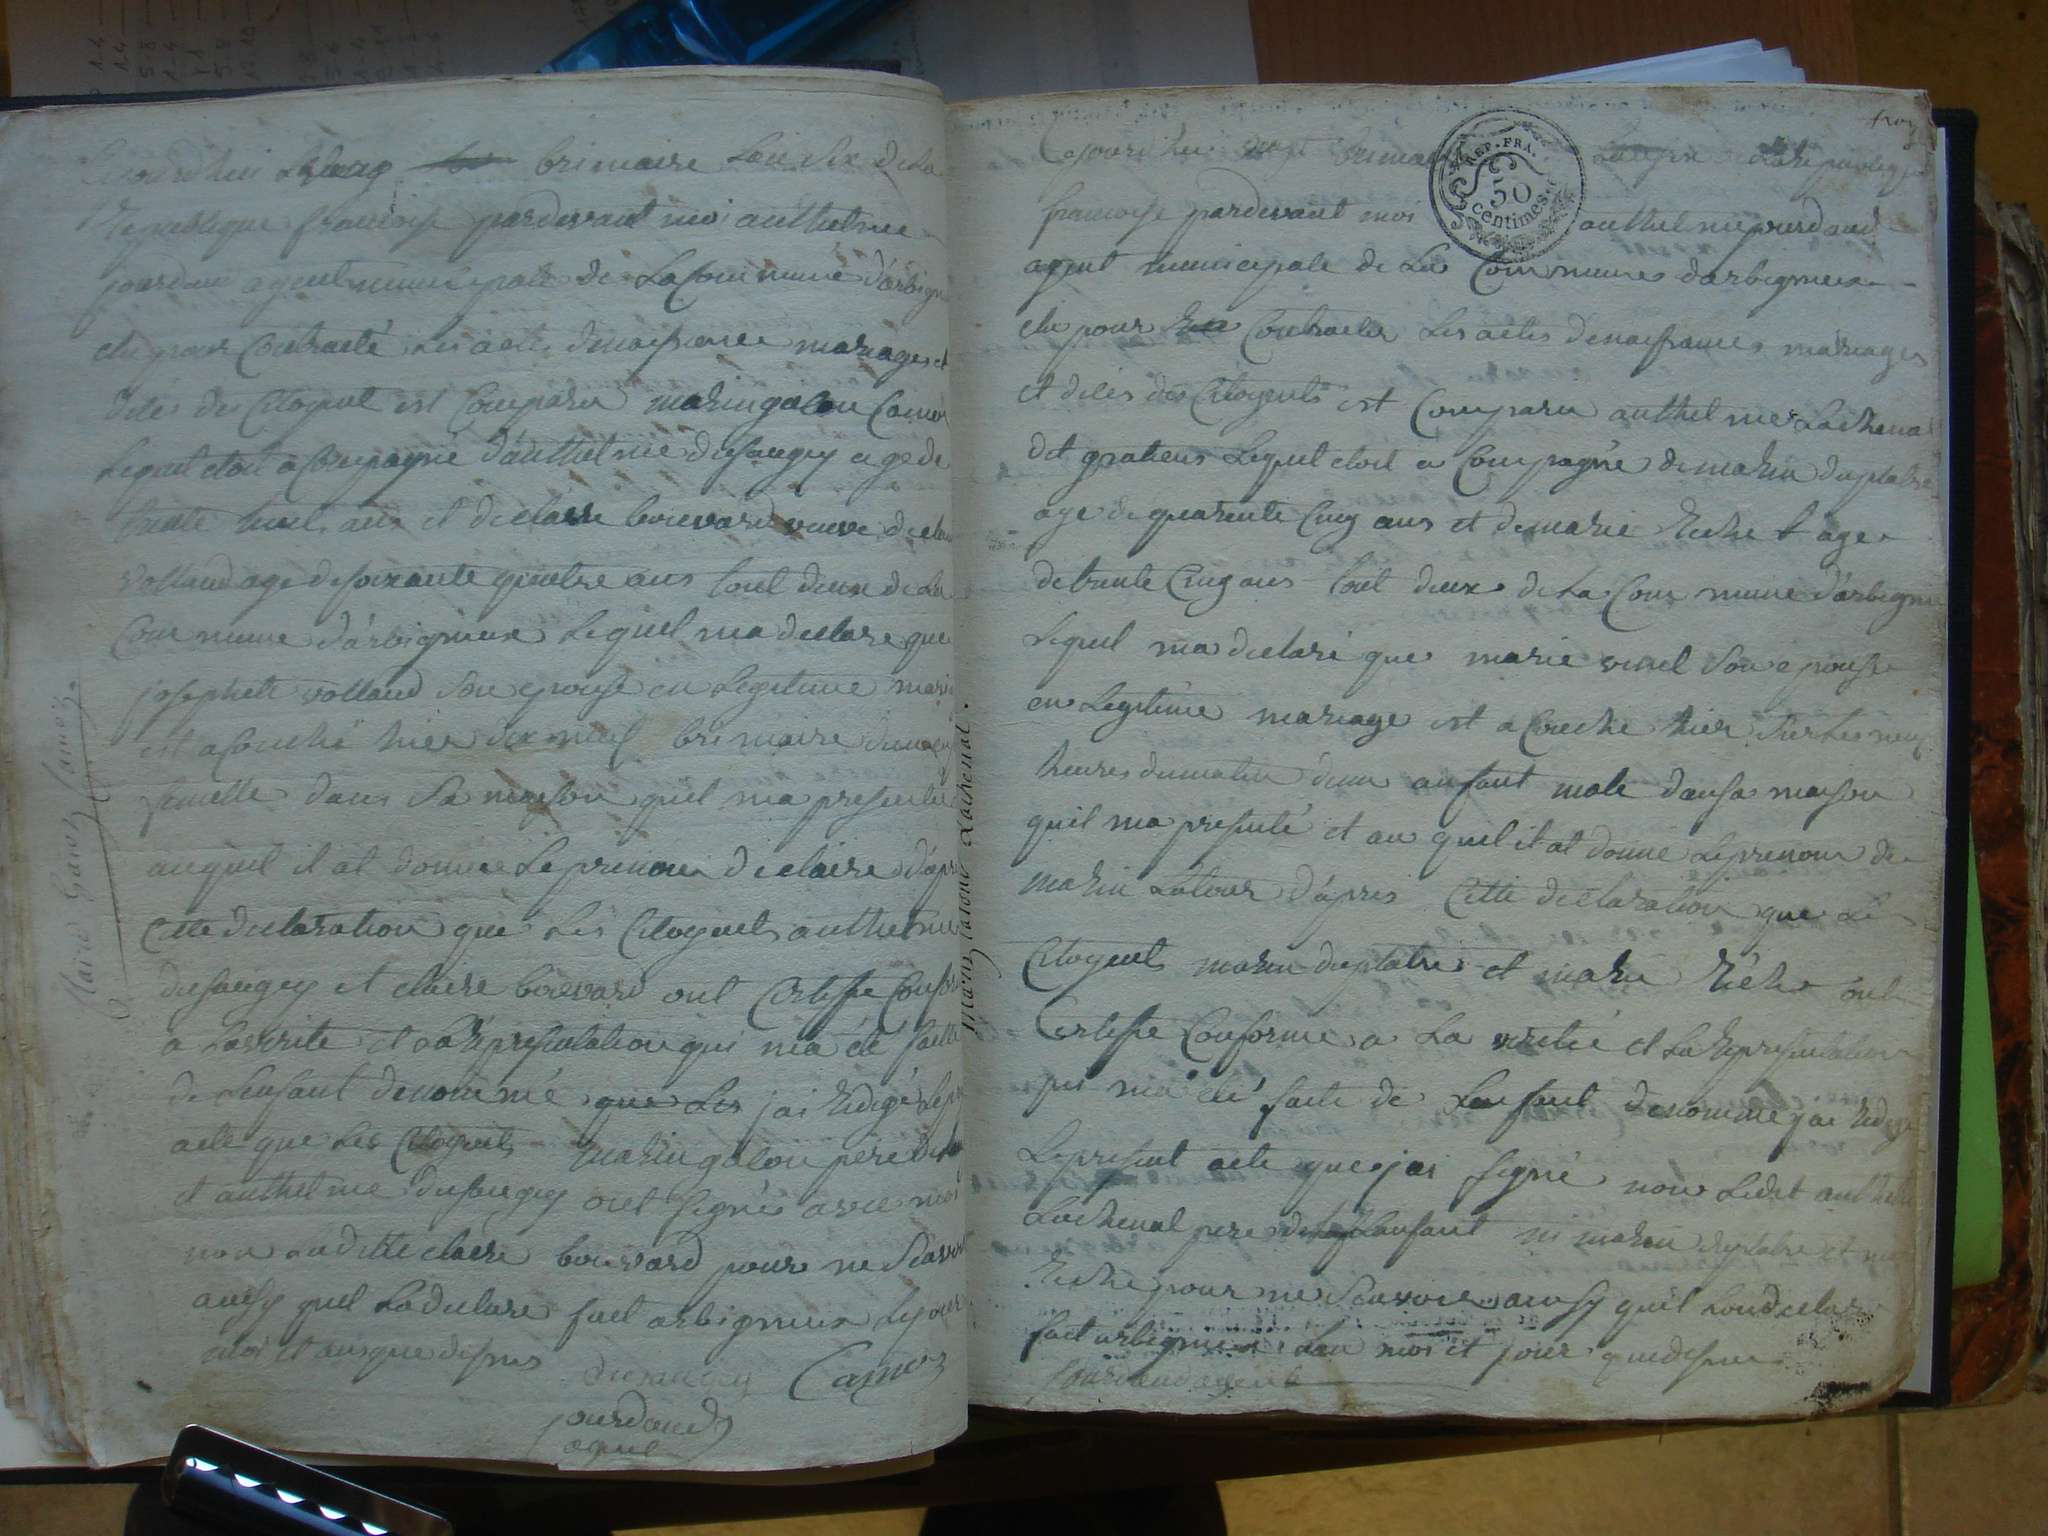 brimaire Lan six de La
Republique francoise pardevant moi anthelme
jourdan agent municipale de La Commune d'arbign
elu pour Contracté Les acte denaissance mariages et
deces des Citoyent est Comparu marin galou Camo
Lequel etoit a Compagné d'anthelme dusaugey age de
trante huit ans et de claire bouvard veuve de clau
volland age de soixante quatre ans tout deux de La
Commune d'arbignieux Lequel ma declare que
josephete volland son epouse en Legitime mari
est acouché hier dix neuf brimaire
femelle dans sa maison quil ma presenté
auquel il at donné Le prenom de claire d'apr
Cette declaration que Les Citoyents anthelme
dusaugey et claire bouvard ont Certiffé Confor
a La verite et La Representation qui ma été faitte
de Lenfant denommé que Les jai Redigé Le pr
acte que Les Citoyents marin galou pere de
et anthelme dusaugey ont signés avec moi
non Laditte claire bouvard pour ne Scavoi
ainsy quel La declare fait arbignieux Le jour
moi et ans que desus
dusaugey Camoz
jourdand
agent
Claire Camoz
Marin Latour Lachenal.
REP. FRA.
50
centimes
Cejourdhui vingt brimaire Lan six de La Republique
francoise pardevant moi anthelme jourdand
agent municipale de La Commune darbignieux
elu pour Contracter Les actes denaissances mariages
et décés des Citoyents est Comparu anthelme Lachenal
dit gratiens Lequel etoit a Compagné de marin duplatre
age de quarente Cinq ans et de marie Riche age
de trente Cinq ans tout deux de La Commune d'arbigni
Lequel ma declaré que marie vinel Son epouse
en Legitime mariage est a Couché hier Sur Les neuf
heures du matin dun anfant male dansa maison
quil ma presenté et au quel il at donné Le prenom de
marin Latour d'apres Cette declaration que Les
Citoyents marin duplatre et marie Riche ont
Certiffé Conforme a La verité et La Representation
qui ma été faite de Lanfant denommé jai Redigé
Le present acte que jai signé non Ledit anthelme
Lachenal pere de Lanfant ni marin duplatre et
Riche pour ne Scavoir ainsy quil Lond declare
fait arbignieux Lan mois et jour que desus
jourdand agent